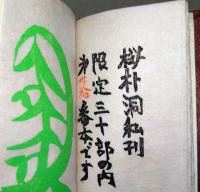 桜朴洞私刊
限定三十部の内
第卅拾番本です